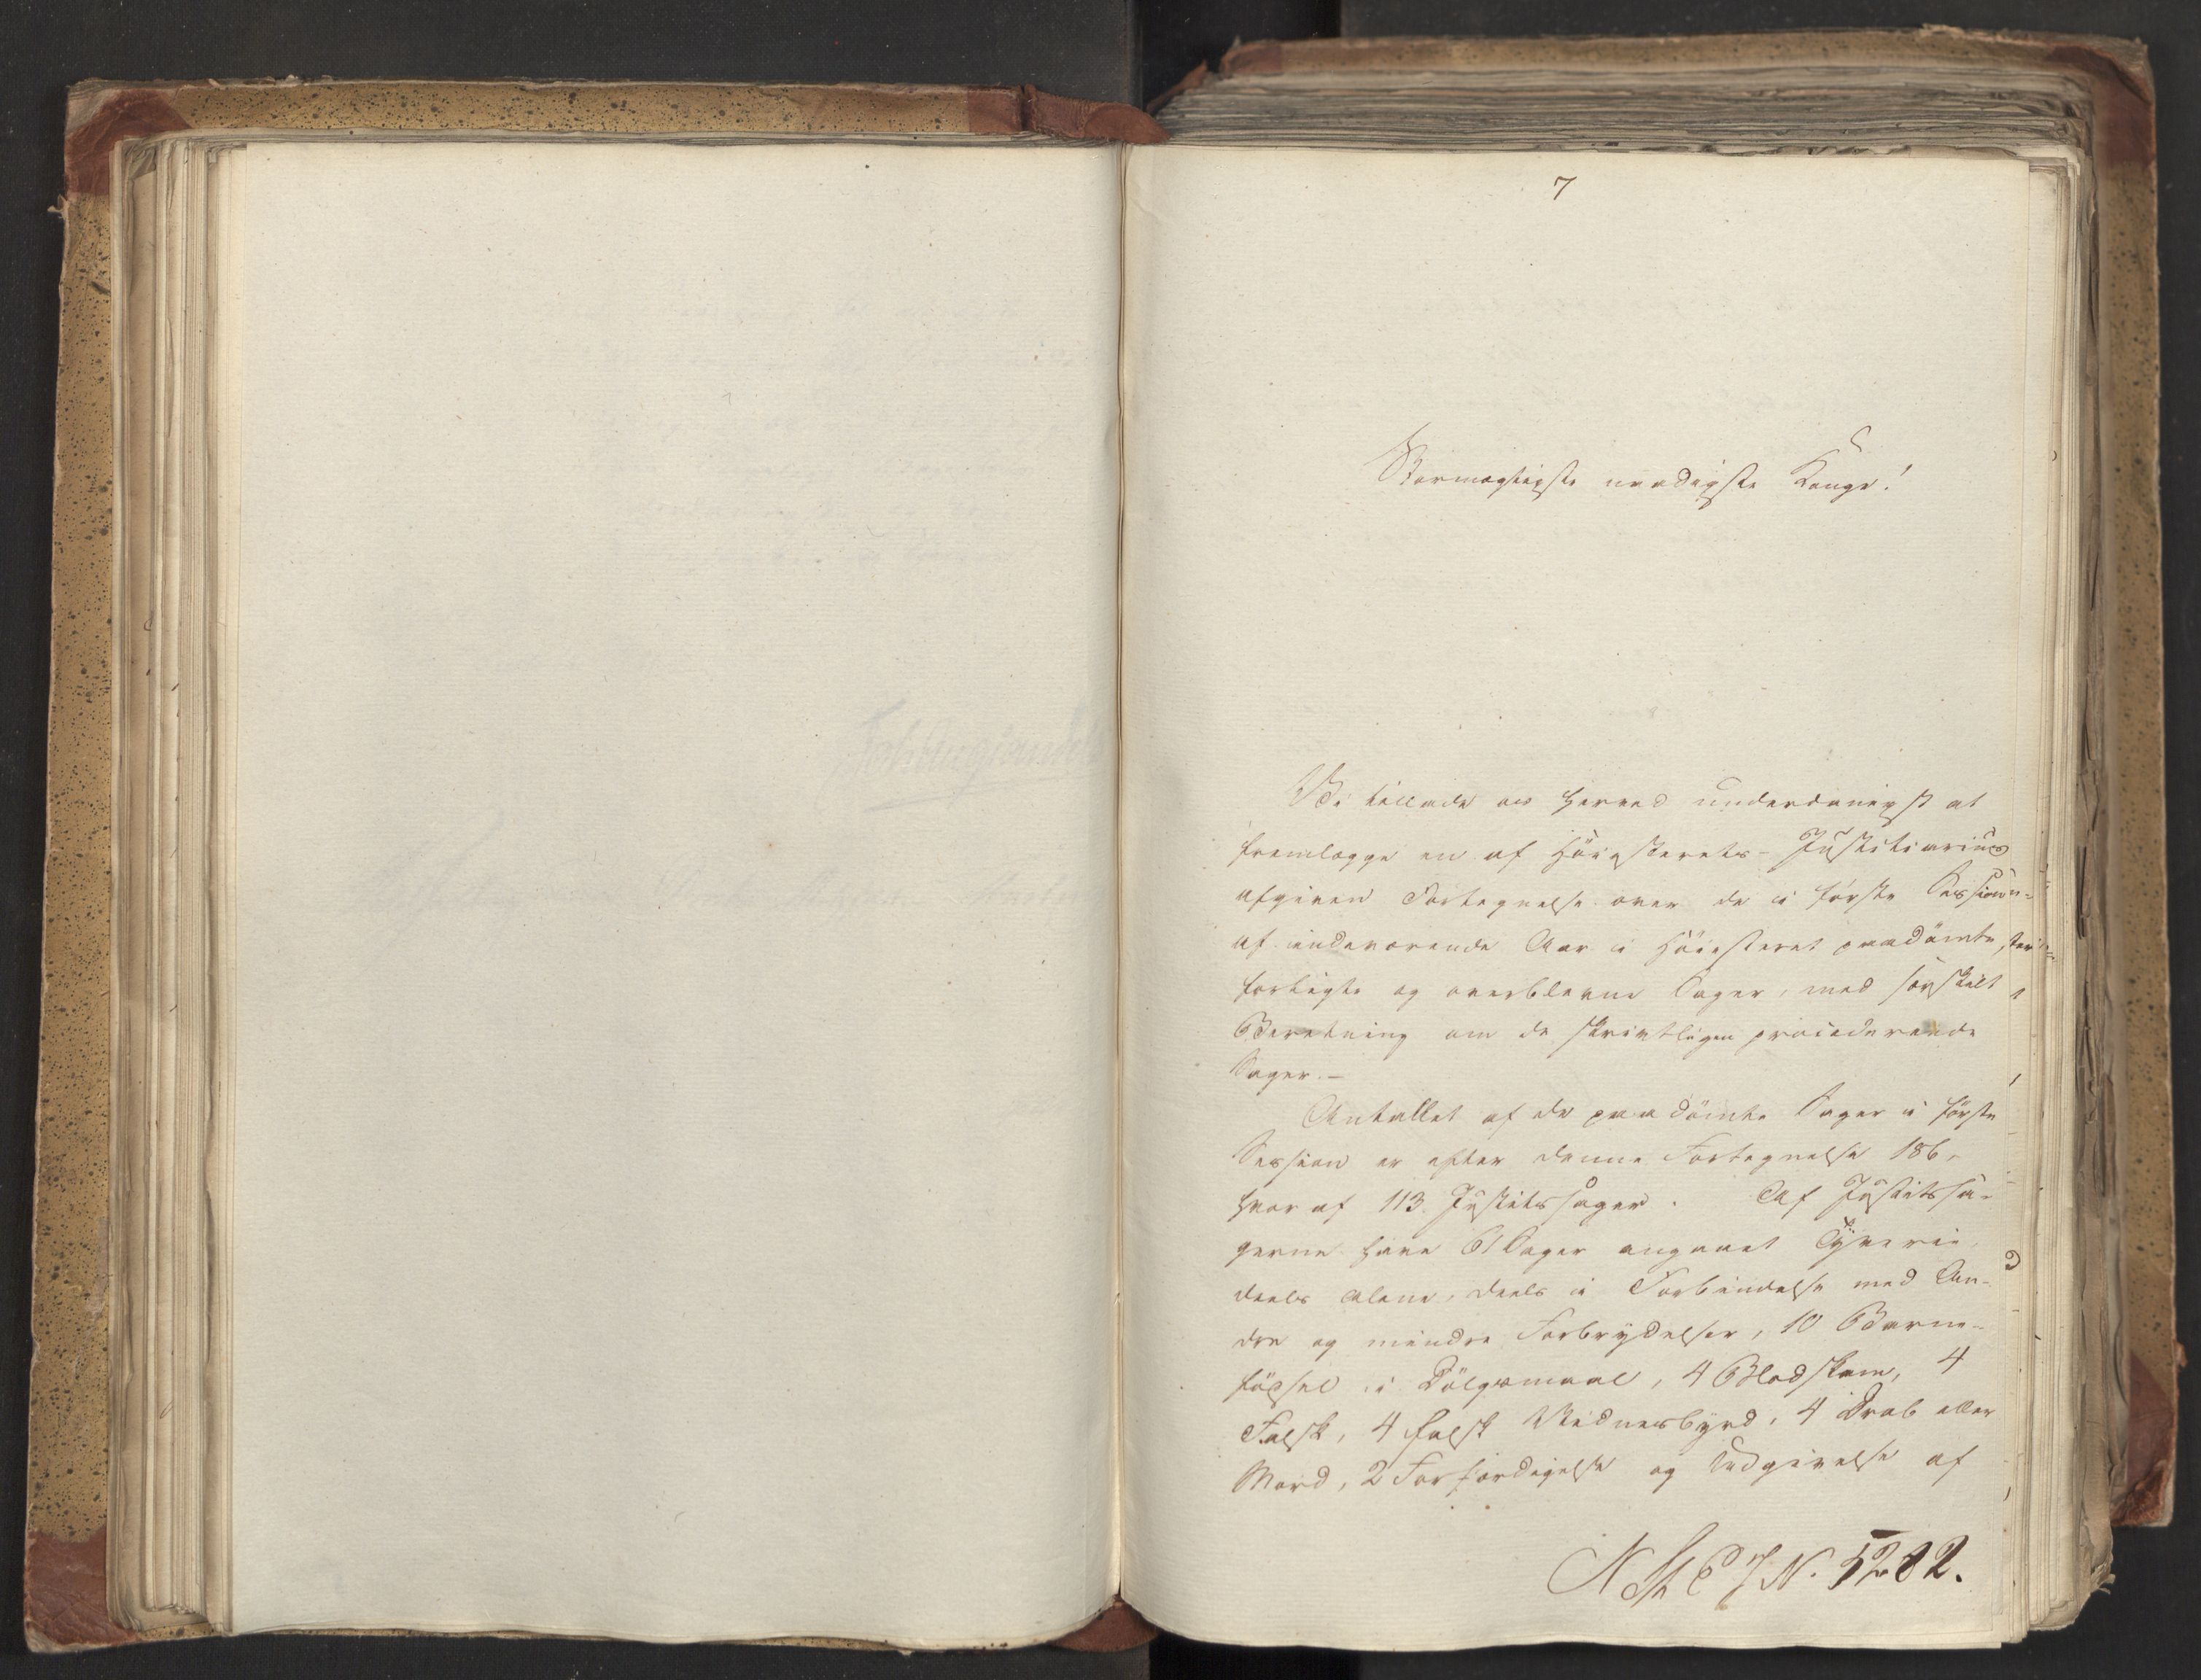 7
Stormægtigste naadigste Konge!
Vi tillade os herved underdanigst at
fremlægge en af Høiesterets-Justitiarius
afgiven Fortegnelse over de i første Session
af indeværende Aar i Höiesteret paadömte,
forligte og overblevne Sager, med særskilt
Beretning om de skrivtligen procederende
Sager.-
Antallet af de paadömte Sager i förste
Session er efter denne Fortegnelse 186,
hvoraf 113 Justitssager. Af Justitssa-
gerne have 61 Sager angaaet Tyverie,
deels alene, deels i Forbindelse med An-
dre og mindre Forbrydelser, 10 Barne-
födsel i Dölgsmaal, 4 Blodskam, 4
Falsk, 4 falsk Vidnesbyrd, 4 Drab eller
Mord, 2 Forfærdigelse og Udgivelse af
N St E J N. 5202.